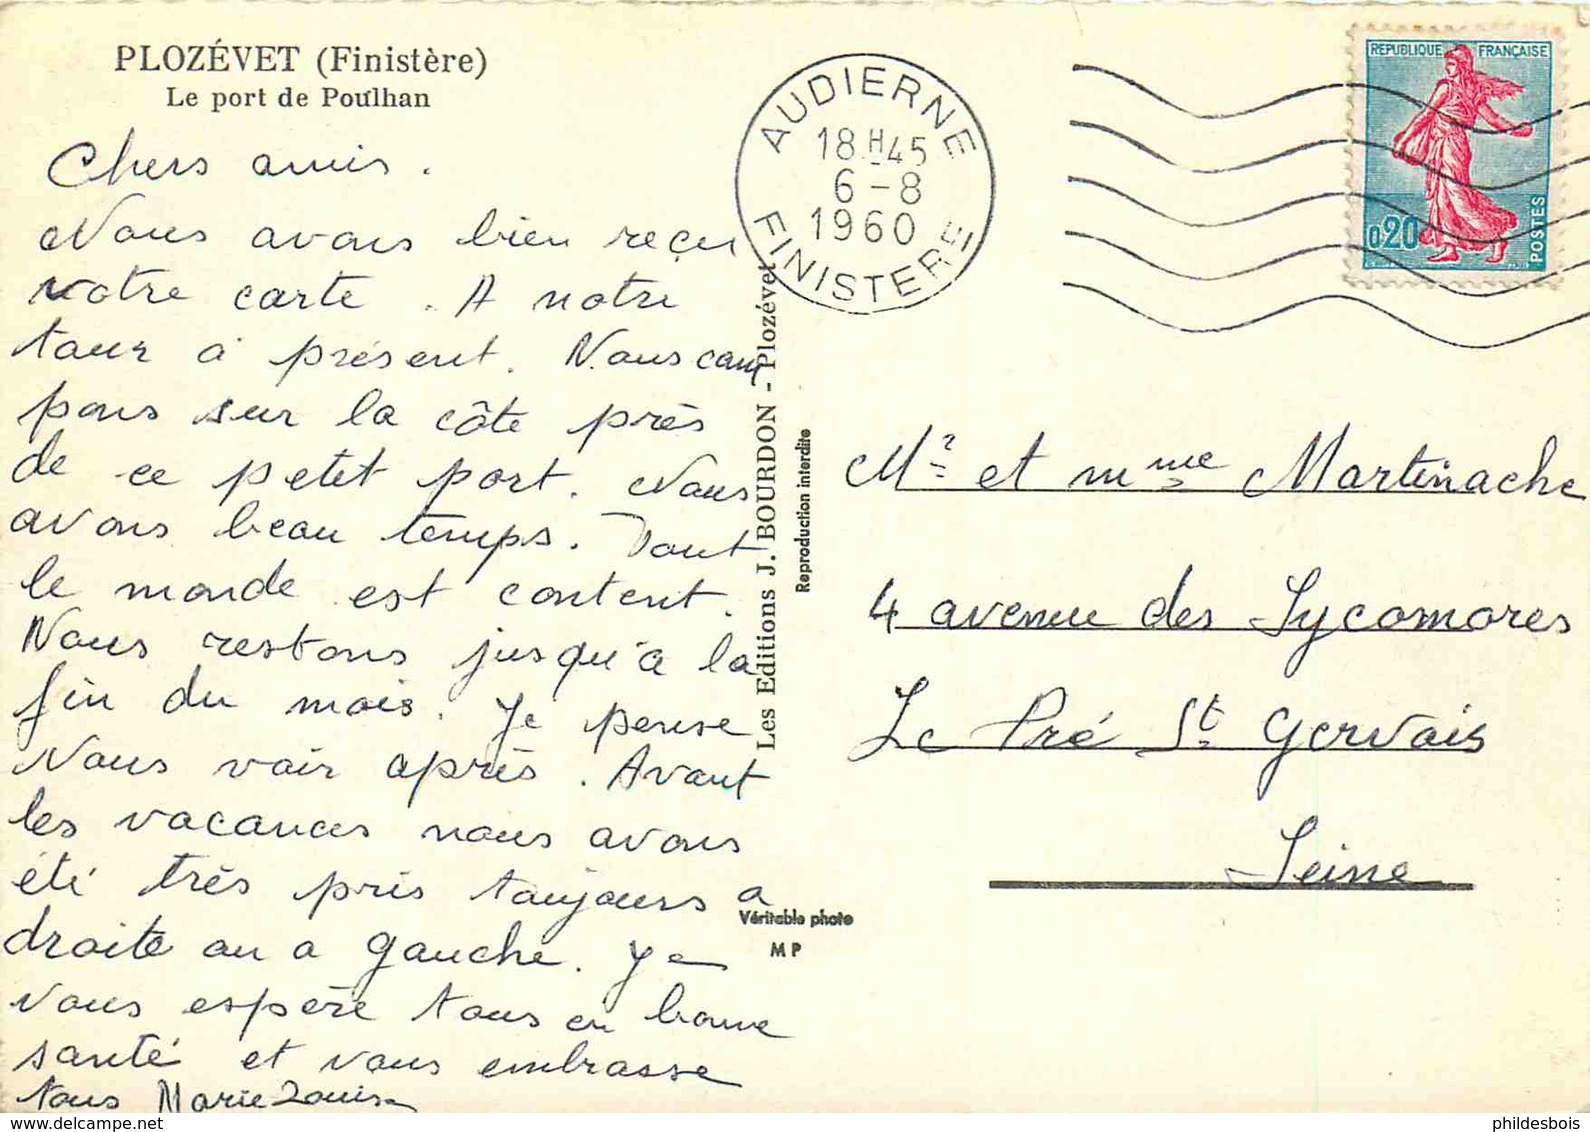 PLOZÉVET (Finistère)
Le port de Poulhan
Chers amis.
Nous avons bien reçu
votre carte. A notre
tour à présent. Nous cam
pons sur la côte près
de ce petit port. Nous
avons beau temps. Tout
le monde est content.
Nous restons jusqu'à la
fin du mois. Je pense
vous voir après. Avant
les vacances nous avons
été très pris toujours a
droite ou a gauche. Je
vous espère tous en bonne
santé et vous embrasse
tous Marie Louise
AUDIERNE
18H45
6-8
1960
FINISTERE
REPUBLIQUE FRANÇAISE
0,20
POSTES
Les Editions J. BOURDON - Plozévet
Reproduction interdite
Véritable photo
MP
Mr et Mme Martinache
4 avenue des Sycomores
Le Pré St Gervais
Seine
phildesbois